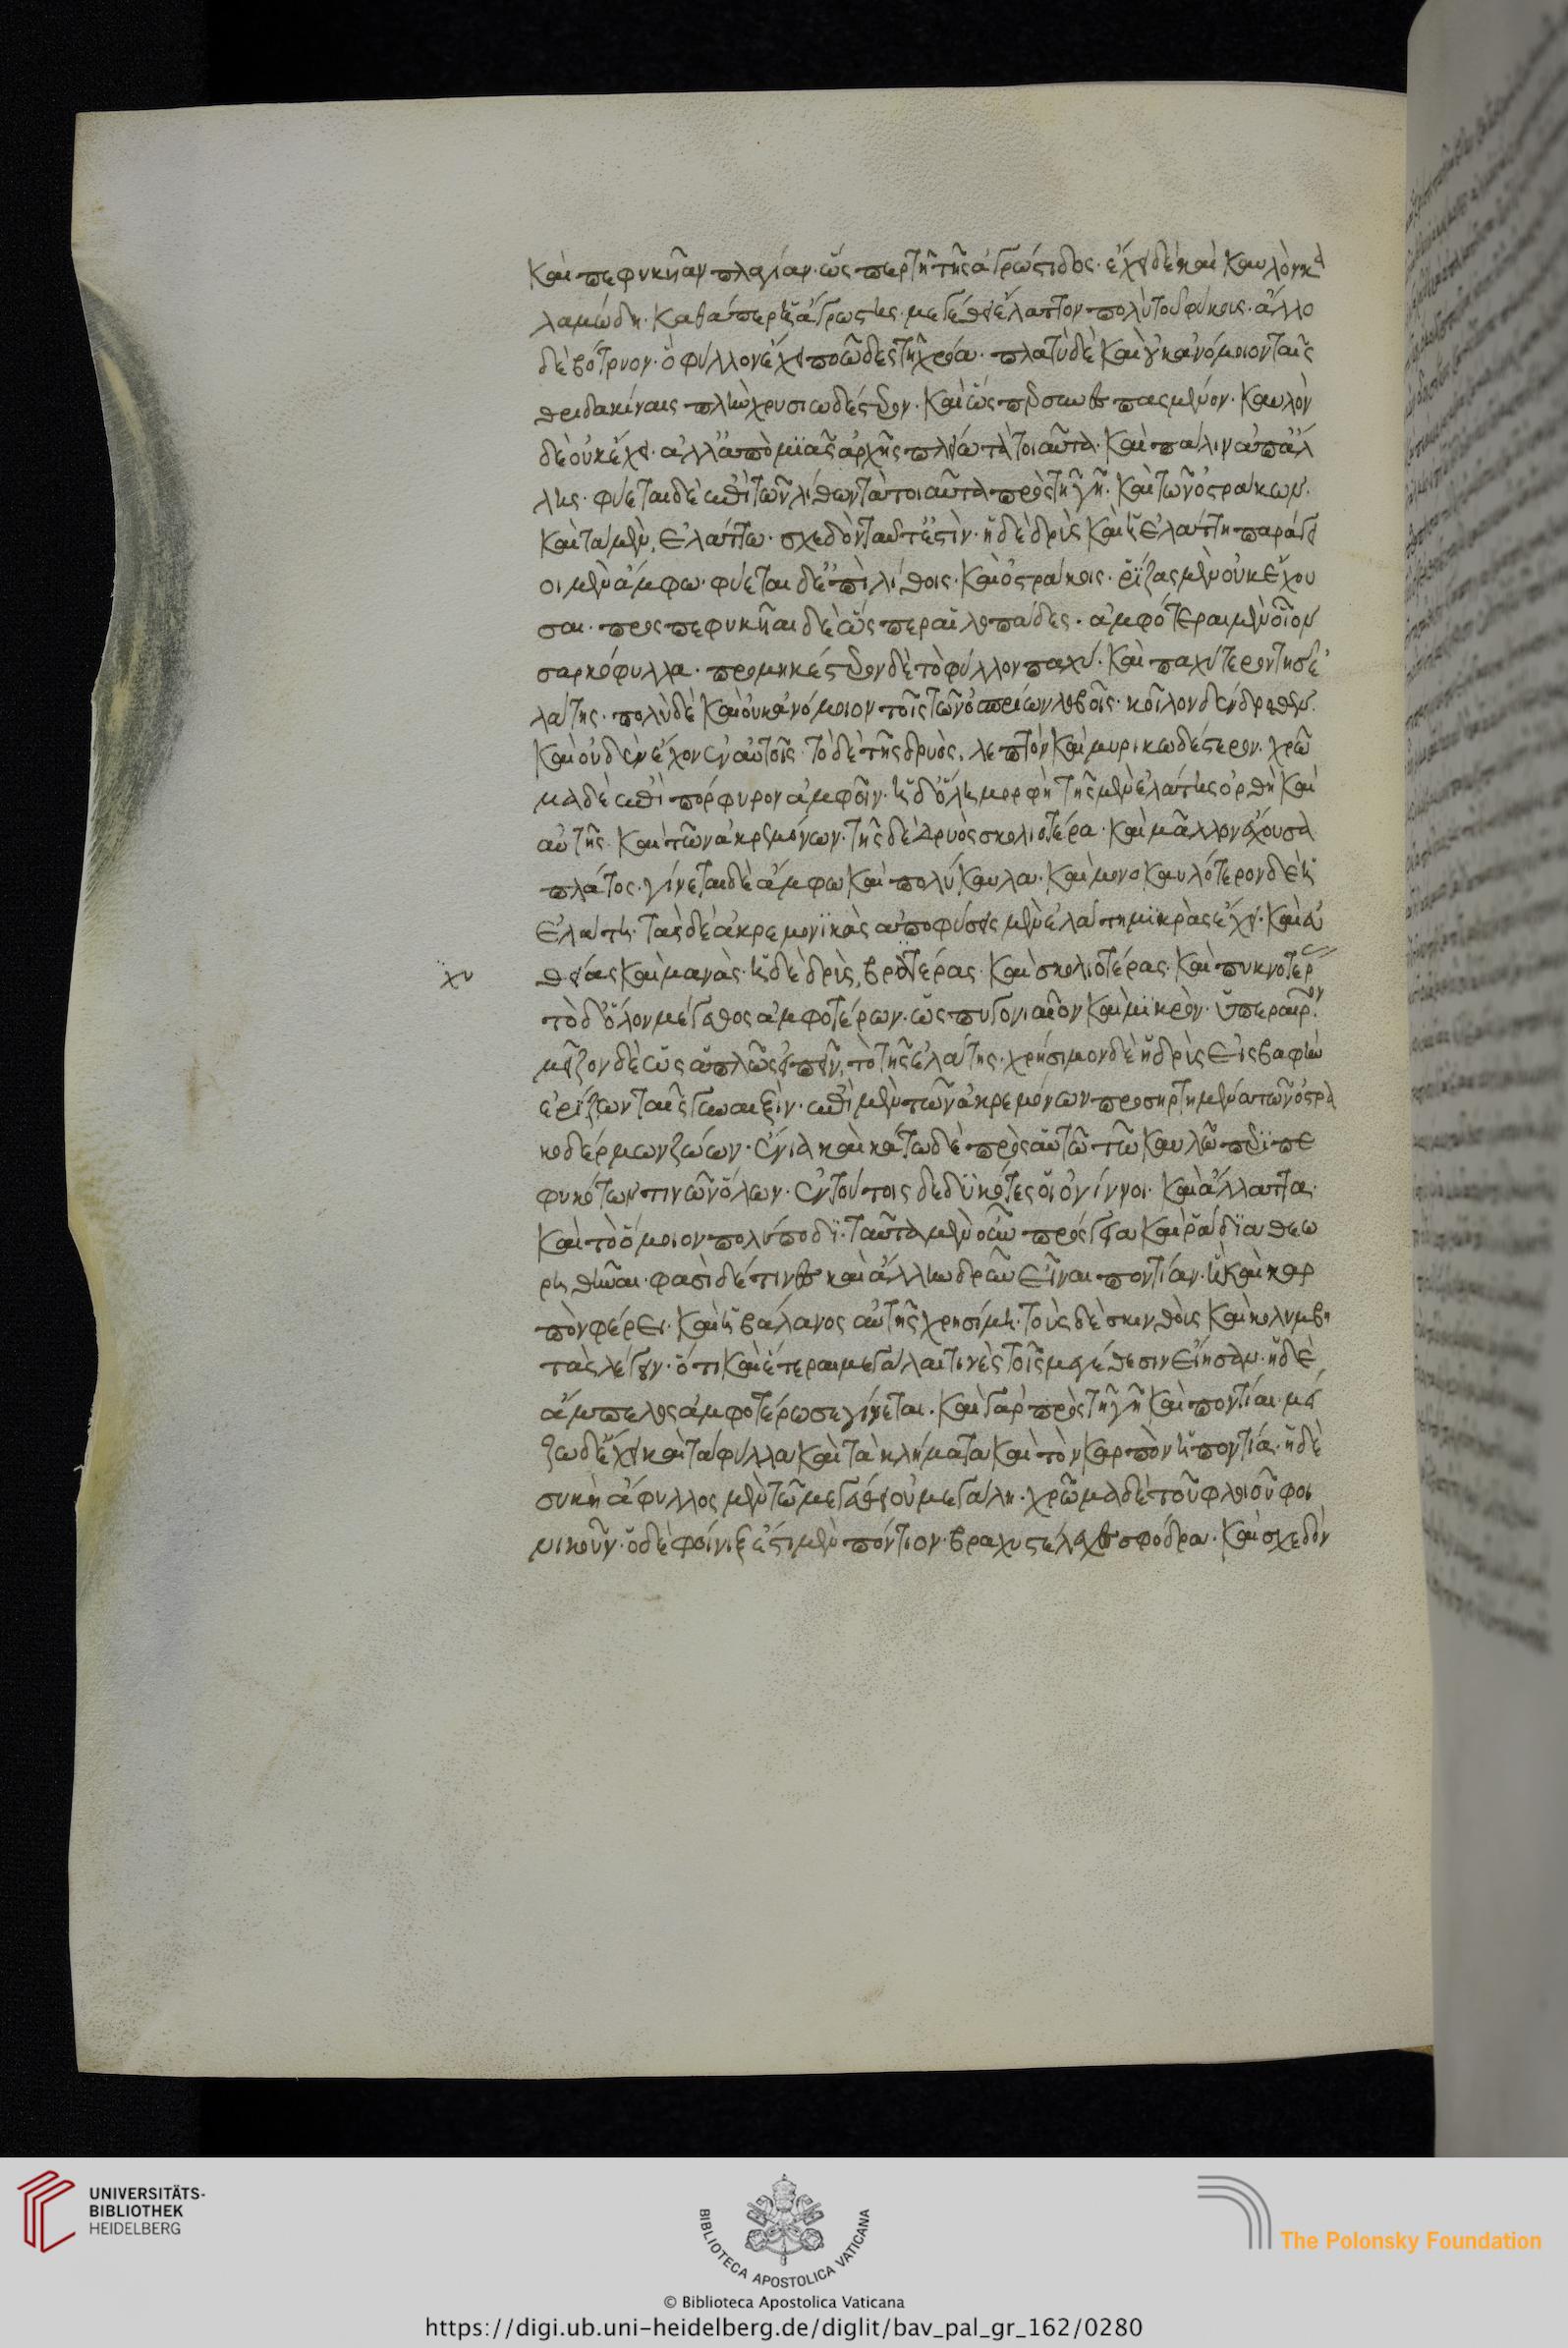 καὶ πεφυκυῖαν πλαγίαν· ὥσπερ τῆ τῆς ἀγρώστιδος· ἔχει δὲ καὶ καυλὸν κα
λαμώδη· καθάπερ ἡ ἄγρωστις· μεγέθει ἔλαττον πολὺ τοῦ φύκοις· ἄλλο
δὲ βότρυον· ὃ φύλλον ἔχει ποῶδες τῆ χρόα· πλατὺ δὲ καὶ γκ ἀνόμοιον ταῖς
θριδακίναις πλὴν χρυσιωδέστερον· καὶ ὥσπερ συνεσπασμένον· καυλὸν
δὲ οὐκ ἔχει· ἀλλ' ἀπὸ μϊᾶς ἀρχῆς πλείω τὰ τοιαῦτα· καὶ πάλιν ἀπ' ἄλ
λης· φύεται δὲ ἐπὶ τῶν λίθων τὰ τοιαῦτα πρὸς τῆ γῆ· καὶ τῶν ὀστράκων·
καὶ τὰ μὲν, ἐλάττω· σχεδὸν ταῦτ' ἐστὶν· ἡ δὲ δρὶς καὶ ἡ ἐλάττη παράγε
οι μὲν ἄμφω· φύεται δ' ἐπὶ λίθοις· καὶ ὀστράκοις· ῥίζας μὲν οὐκ ἔχου
σαι· προσπεφυκῆαι δὲ ὥσπερ αἱ λοπάδες· ἀμφότεραι μὲν οἷον
σαρκόφυλλα· προμηκέστερον δὲ τὸ φύλλον παχύ· καὶ παχύτερον τῆς ἐ
λάτης· πολὺ δὲ καὶ οὐκ ἀνόμοιον τοῖς τῶν ὀσπρίων λοβοῖς· κοῖλον δένδροθεν·
καὶ οὐδὲν ἔχον ἐν αὐτοῖς· τὸ δὲ τῆς δρυὸς, λεπτὸν καὶ μυρικωδέστερον· χρῶ
μα δὲ ἐπὶ πόρφυρον ἀμφοῖν· ἡ δ' ὅλη μορφὴ τῆς μὲν ἐλάτης ὀρθὴ καὶ
αὐτῆς· καὶ τῶν ἀκρεμόνων· τῆς δὲ δρυὸς σκολιοτέρα· καὶ μᾶλλον ἔχουσα
πλάτος· γίνεται δὲ ἄμφω καὶ πολύκαυλα· καὶ μονοκαυλότερον δὲ ἡ
ἐλάτη· τὰς δὲ ἀκρεμονϊκὰς ἀποφύσεις μὲν ἐλάτη μϊκρὰς ἔχει· καὶ εὐ
θείας καὶ μανὰς· ἡ δὲ δρὶς, βροτέρας· καὶ σκολιοτέρας· καὶ πυκνοτέρ
τὸ δ' ὅλον μέγεθος ἀμφοτέρων· ὡς πυγονιαῖον καὶ μϊκρὸν· ὑπεραῖρον
μεῖζον δὲ ὡς ἁπλῶς εἰπεῖν, τὸ τῆς ἐλάτης· χρήσιμον δὲ ἡ δρὶς εἰς βαφὴν
ἐρίζων ταῖς γυναιξὶν· ἐπὶ μὲν τῶν ἀκρεμόνων προσηρτημένα τῶν ὀστρα
κοδέρμων ζώων· ἔνια καὶ κάτω δὲ πρὸς αὐτῶ τῶ καυλῶ περιπε
φυκότων τινῶν ὅλων· ἐν τούτοις δεδϋκότες οἱ ὀνίννοι· καὶ ἄλλ' ἄττα·
καὶ τὸ ὅμοιον πολύποδϊ· ταῦτα μὲν οὖν πρόσγεια καὶ ῥάδϊα θεω
ρηθῆναι· φασὶ δέ τινες καὶ ἄλλην δρῦν εἶναι ποντίαν· ἣ καὶ καρ
πὸν φέρει· καὶ ἡ βάλανος αὐτῆς χρησίμη· τοὺς δὲ σκινθοὺς καὶ κολυμβη
τὰς λέγειν· ὅτι καὶ ἕτεραι μεγάλαι τινὲς τοῖς μεγέθεσιν εἴησαν· ἡ δὲ
ἄμπελος ἀμφοτέρωσε γίνεται· καὶ γὰρ πρὸς τῆ γῆ καὶ ποντία· μεί
ζω δ' ἔχει καὶ τὰ φύλλα καὶ τὰ κλήματα καὶ τὸν καρπὸν ἡ ποντία· ἡ δὲ
συκῆ ἄφυλλος μὲν τῶ μεγέθει οὐ μεγάλη· χρῶμα δὲ τοῦ φλοιοῦ φοι
νικοῦν· ὁ δὲ φοίνιξ ἐστὶ μὲν πόντιον· βραχυστέλεχες σφόδρα· καὶ σχεδὸν
UNIVERSITÄTS-
BIBLIOTHEK
HEIDELBERG
BIBLIOTECA APOSTOLICA VATICANA
The Polonsky Foundation
© Biblioteca Apostolica Vaticana
https://digi.ub.uni-heidelberg.de/diglit/bav_pal_gr_162/0280